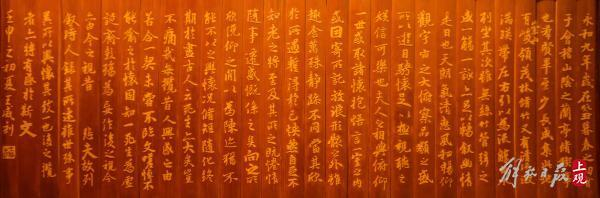 永和九年歲在癸丑暮春之初會
于會稽山陰之蘭亭脩禊事
也群賢畢至少長咸集此地
有崇山峻領茂林脩竹又有清流激
湍暎帶左右引以為流觴曲水
列坐其次雖無絲竹管弦之
盛一觴一詠亦足以暢敘幽情
是日也天朗氣清惠風和暢仰
觀宇宙之大俯察品類之盛
所以遊目騁懷足以極視聽之
娛信可樂也夫人之相與俯仰
一世或取諸懷抱悟言一室之內
或因寄所託放浪形骸之外雖
趣舍萬殊靜躁不同當其欣
於所遇暫得於己快然自足不
知老之將至及其所之既惓情
隨事遷感慨係之矣向之所
欣俛仰之間以為陳迹猶不
能不以之興懷況脩短隨化終
期於盡古人云死生亦大矣豈
不痛哉每攬昔人興感之由
若合一契未嘗不臨文嗟悼不
能喻之於懷固知一死生為虛
誕齊彭殤為妄作後之視今
亦由今之視昔悲夫故列
敘時人錄其所述雖世殊事
異所以興懷其致一也後之攬
者亦將有感於斯文
壬申之初夏王
解放日报
上观